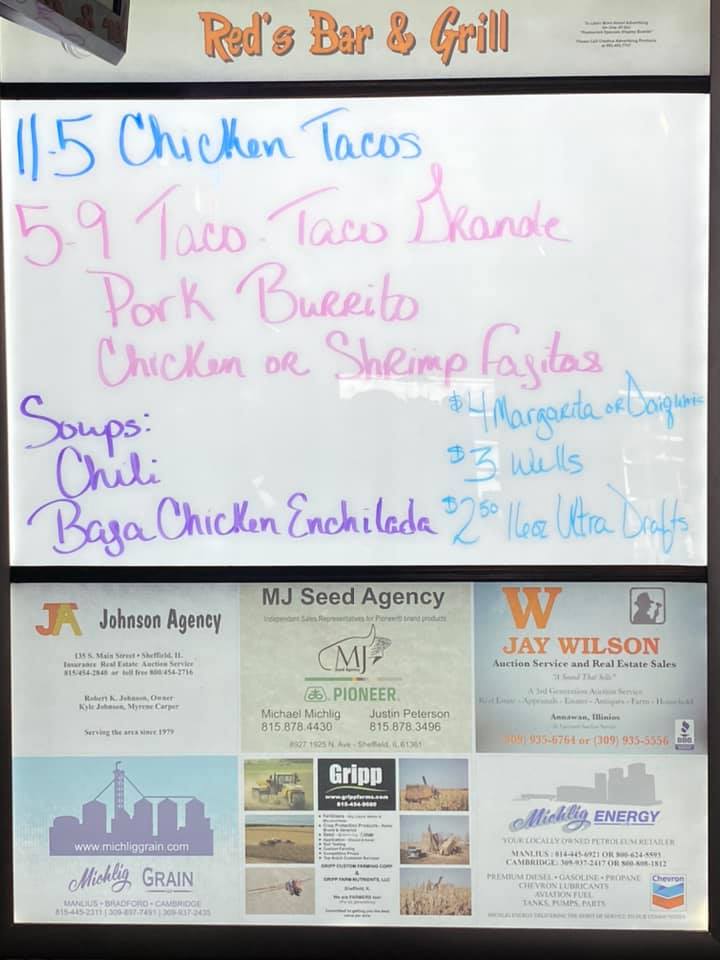 Red's Bar & Grill
To Learn More About Advertising
on One of Our
"Restaurant Specials Display Boards"
Please Call Creative Advertising Products
11-5 Chicken Tacos
5-9 Taco. Taco Grande
Pork Burrito
Chicken or Shrimp Fajitas
Soups:
Chili
Baja Chicken Enchilada
$4 Margarita or Daiquiri
$3 Wells
$2.50 16oz Ultra Drafts
JA Johnson Agency
135 S. Main Street • Sheffield, IL
Insurance Real Estate Auction Service
815/454-2840 or toll free 800/454-2716
Robert K. Johnson, Owner
Kyle Johnson, Myrene Carper
Serving the area since 1979
MJ Seed Agency
Independent Sales Representatives for Pioneer® brand products
MJ
Seed Agency
PIONEER.
Michael Michlig
815.878.4430
Justin Peterson
815.878.3496
8927 1925 N. Ave - Sheffield, IL 61361
W
JAY WILSON
Auction Service and Real Estate Sales
"A Sound That Sells"
A 3rd Generation Auction Service
Real Estate - Appraisals - Estates - Antiques - Farm - Household
Annawan, Illinios
(309) 935-6764 or (309) 935-5556
BBB
www.michliggrain.com
Michlig GRAIN
MANLIUS • BRADFORD • CAMBRIDGE
815-445-2311 | 309-897-7491 | 309-937-2435
Gripp
www.grippfarms.com
815-454-9680
GRIPP CUSTOM FARMING CORP
&
GRIPP FARM NUTRIENTS, LLC
Sheffield, IL
We are FARMERS too!
Committed to getting you the best
value per acre
Michlig ENERGY
YOUR LOCALLY OWNED PETROLEUM RETAILER
MANLIUS : 814-445-6921 OR 800-624-5593
CAMBRIDGE: 309-937-2417 OR 800-808-1812
PREMIUM DIESEL • GASOLINE • PROPANE
CHEVRON LUBRICANTS
AVIATION FUEL
TANKS, PUMPS, PARTS
Chevron
MICHLIG ENERGY DELIVERING THE SPIRIT OF SERVICE TO OUR COMMUNITIES